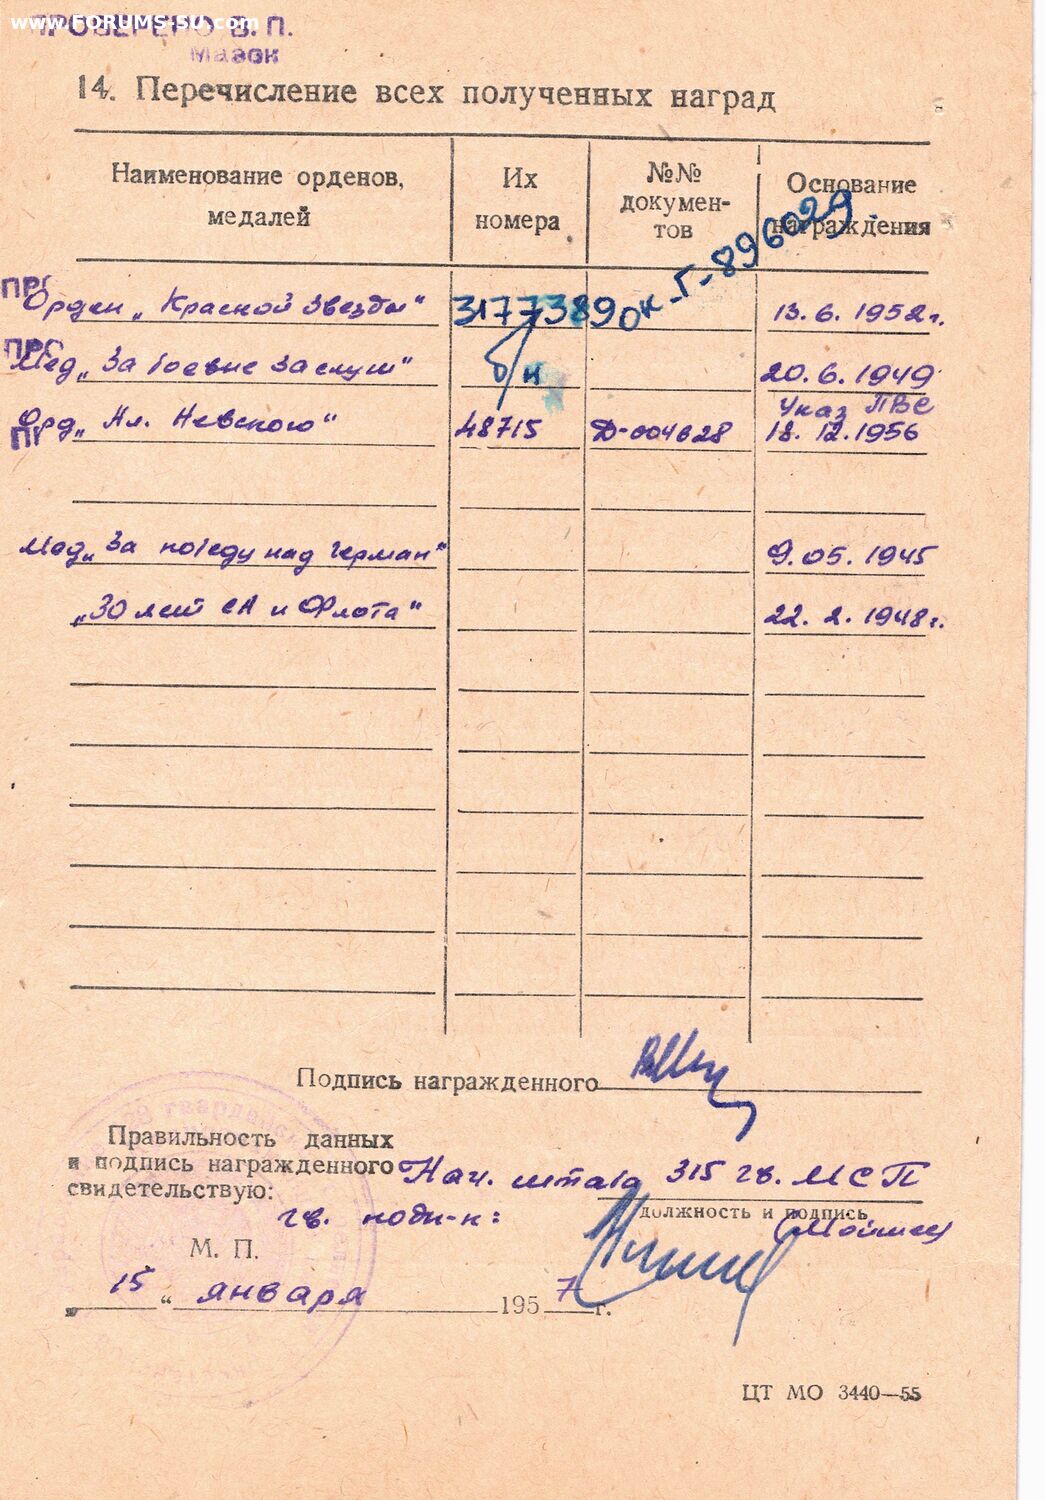 www.FORUMS-SU.com
ПРОВЕРЕНО В. П.
Мазок
14. Перечисление всех полученных наград
Наименование орденов, медалей
Их номера
№№ документов
Основание награждения
Орден „Красной Звезды" 3177389 ок-Г-896029 13.6.1952г.
Мед„За боевые заслуги" б/н 20.6.1949
Орд„Ал. Невского" 48715 Д-004628 Указ ПВС 18.12.1956
Мед„За победу над Герман" 9.05.1945
„30 лет СА и Флота" 22.2.1948г.
Подпись награжденного
Правильность данных
и подпись награжденного
свидетельствую:
Нач. штаба 315 гв. МСП
должность и подпись
гв. подп-к:
М. П.
„15" января 1957 г.
ЦТ МО 3440—55